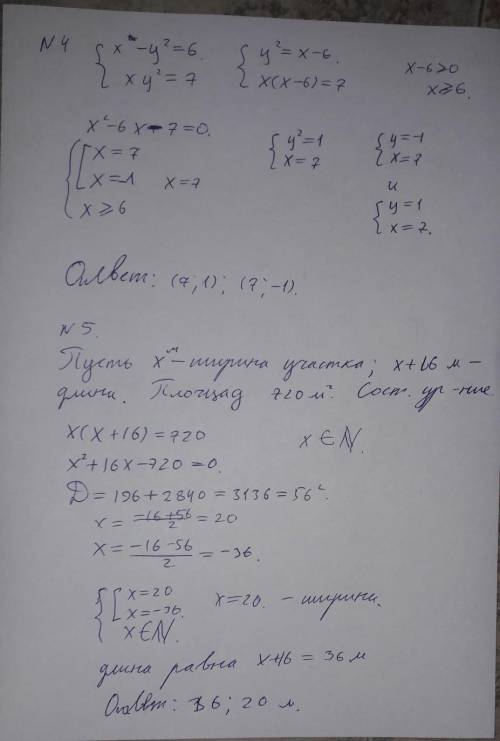 N 4 { x - y² = 6. { y² = x - 6. x - 6 > 0
{ x y² = 7 { x(x-6) = 7 x ⩾ 6.
x² - 6x - 7 = 0.
{ [ x = 7 { y² = 1 { y = -1
[ x = -1 x = 7 { x = 7 { x = 7
{ x ⩾ 6 и
{ y = 1
{ x = 7.
Ответ: (7; 1); (7; -1).
N 5.
Пусть x м - ширина участка; x + 16 м -
длина. Площад 720 м². Сост. ур-ние.
x(x + 16) = 720 x ∈ N.
x² + 16x - 720 = 0.
D = 196 + 2840 = 3136 = 56².
x = (-16 + 56)/2 = 20
x = (-16 - 56)/2 = -36.
{ [ x = 20 x = 20. - ширина.
[ x = -36.
{ x ∈ N.
длина равна x + 16 = 36 м
Ответ: 36; 20 м.